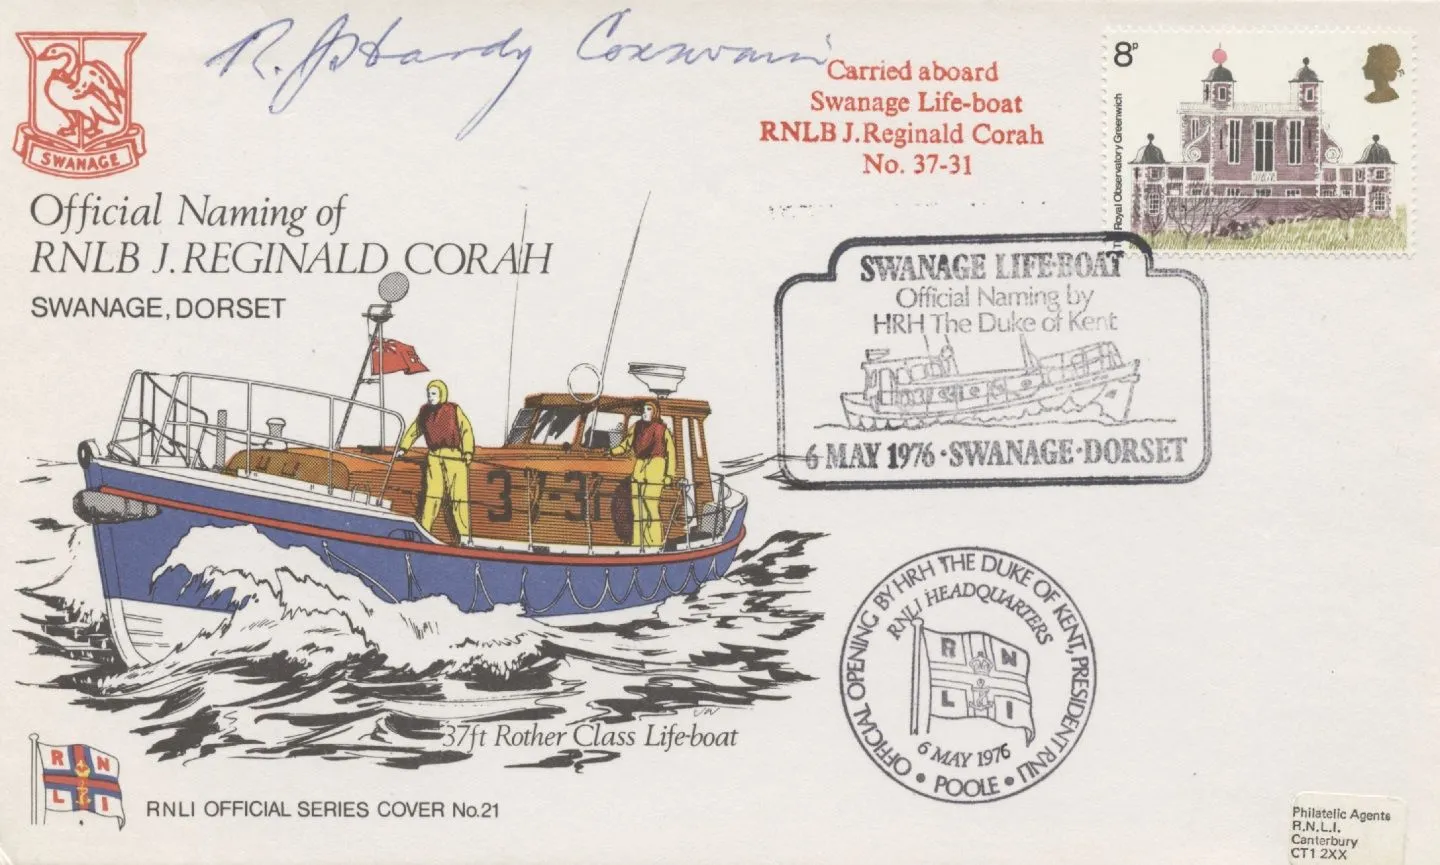 R. J. Hardy Coxswain
SWANAGE
Carried aboard
Swanage Life-boat
RNLB J.Reginald Corah
No. 37-31
8P
The Royal Observatory Greenwich
Official Naming of
RNLB J. REGINALD CORAH
SWANAGE, DORSET
SWANAGE LIFE-BOAT
Official Naming by
HRH The Duke of Kent
6 MAY 1976·SWANAGE·DORSET
37-31
OFFICIAL OPENING BY HRH THE DUKE OF KENT, PRESIDENT RNLI
RNLI HEADQUARTERS
R N
L I
6 MAY 1976
• POOLE •
37ft Rother Class Life-boat
R N
L I
RNLI OFFICIAL SERIES COVER No.21
Philatelic Agents
R.N.L.I.
Canterbury
CT1 2XX